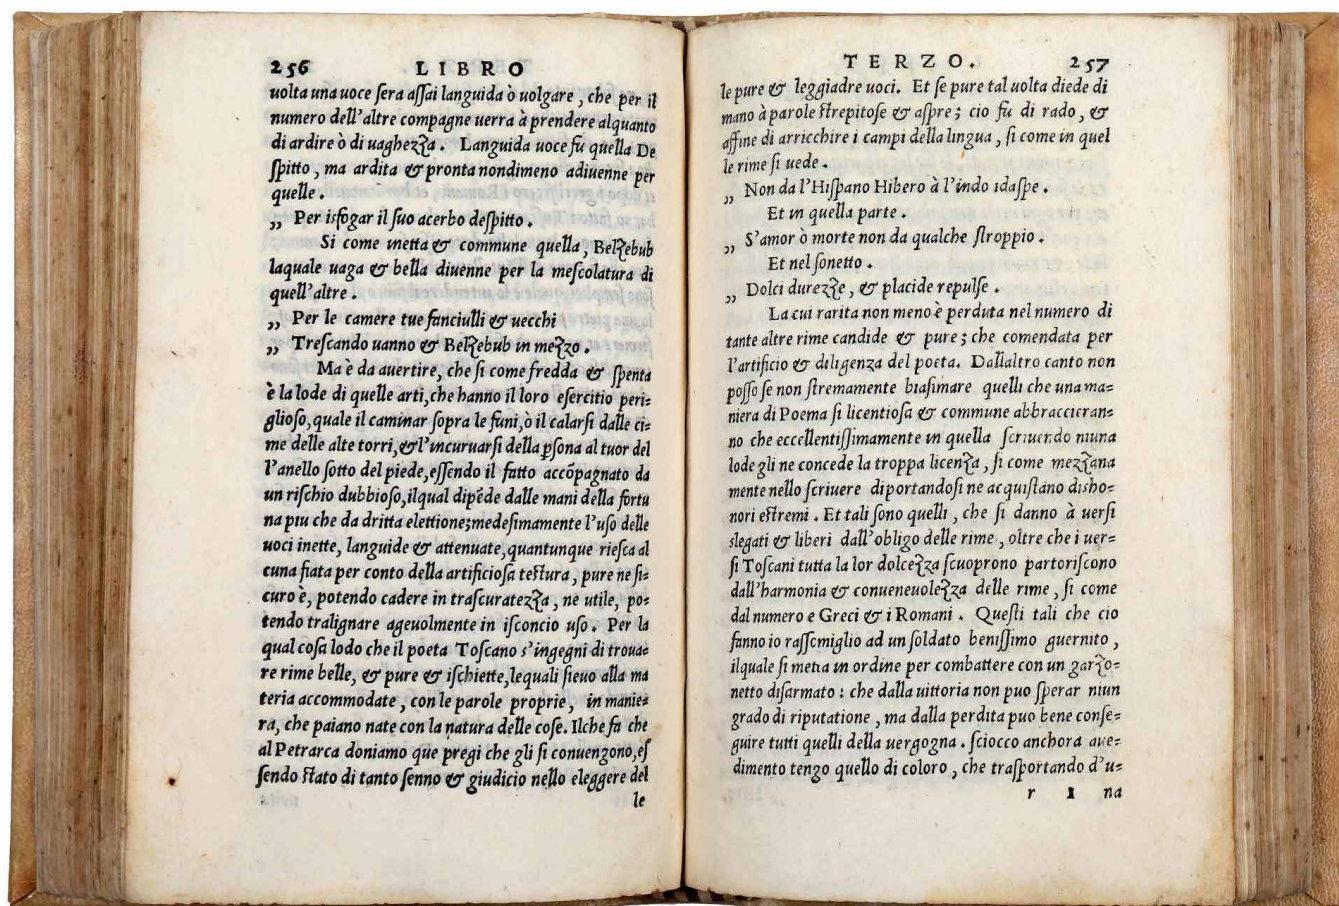 256 LIBRO
uolta una uoce ſera aſſai languida ò uolgare, che per il
numero dell'altre compagne uerra à prendere alquanto
di ardire ò di uaghezza. Languida uoce fu quella De
ſpitto, ma ardita & pronta nondimeno adiuenne per
quelle.
„ Per isfogar il ſuo acerbo deſpitto.
Si come inetta & commune quella, Belzebub
laquale uaga & bella diuenne per la meſcolatura di
quell'altre.
„ Per le camere tue fanciulli & uecchi
„ Treſcando uanno & Belzebub in mezzo.
Ma è da auertire, che ſi come fredda & ſpenta
è la lode di quelle arti, che hanno il loro eſercitio peri=
glioſo, quale il caminar ſopra le funi, ò il calarſi dalle ci=
me delle alte torri, & l'incuruarſi della ꝑſona al tuor del
l'anello ſotto del piede, eſſendo il fatto accõpagnato da
un riſchio dubbioſo, ilqual dipẽde dalle mani della fortu
na piu che da dritta elettione; medeſimamente l'uſo delle
uoci inette, languide & attenuate, quantunque rieſca al
cuna fiata per conto della artificioſa teſtura, pure ne ſi=
curo è, potendo cadere in traſcuratezza, ne utile, po=
tendo tralignare ageuolmente in iſconcio uſo. Per la
qual coſa lodo che il poeta Toſcano s'ingegni di troua=
re rime belle, & pure & iſchiette, lequali ſieuo alla ma
teria accommodate, con le parole proprie, in manie=
ra, che paiano nate con la natura delle coſe. Ilche fa che
al Petrarca doniamo que pregi che gli ſi conuengono, eſ
ſendo ſtato di tanto ſenno & giudicio nello eleggere del
le
TERZO. 257
le pure & leggiadre uoci. Et ſe pure tal uolta diede di
mano à parole ſtrepitoſe & aſpre; cio fu di rado, &
affine di arricchire i campi della lingua, ſi come in quel
le rime ſi uede.
„ Non da l'Hiſpano Hibero à l'indo idaſpe.
Et in quella parte.
„ S'amor ò morte non da qualche ſtroppio.
Et nel ſonetto.
„ Dolci durezze, & placide repulſe.
La cui rarita non meno è perduta nel numero di
tante altre rime candide & pure; che comendata per
l'artificio & diligenza del poeta. Dallaltro canto non
poſſo ſe non ſtremamente biaſimare quelli che una ma=
niera di Poema ſi licentioſa & commune abbraccieran=
no che eccellentiſſimamente in quella ſcriuendo niuna
lode gli ne concede la troppa licenza, ſi come mezzana
mente nello ſcriuere diportandoſi ne acquiſtano disho=
nori eſtremi. Et tali ſono quelli, che ſi danno à uerſi
slegati & liberi dall'obligo delle rime, oltre che i uer=
ſi Toſcani tutta la lor dolcezza ſcuoprono partoriſcono
dall'harmonia & conueneuolezza delle rime, ſi come
dal numero e Greci & i Romani. Queſti tali che cio
fanno io raſſemiglio ad un ſoldato beniſſimo guernito,
ilquale ſi metta in ordine per combattere con un garzo=
netto diſarmato: che dalla uittoria non puo ſperar niun
grado di riputatione, ma dalla perdita puo bene conſe=
guire tutti quelli della uergogna. ſciocco anchora aue=
dimento tengo quello di coloro, che traſportando d'u=
r 1 na